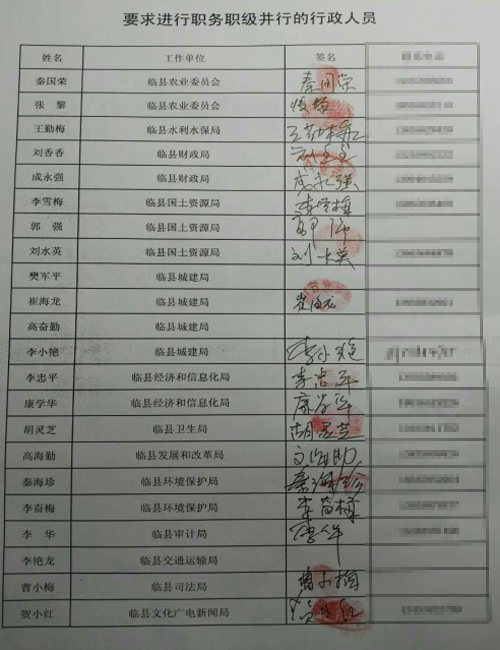 要求进行职务职级并行的行政人员
姓名 工作单位 签名
秦国荣 临县农业委员会 秦国荣
张 黎 临县农业委员会
王勤梅 临县水利水保局 王勤梅
刘香香 临县财政局 刘香香
成永强 临县财政局 成永强
李雪梅 临县国土资源局 李雪梅
郭 强 临县国土资源局 郭强
刘永英 临县国土资源局 刘永英
樊军平 临县城建局
崔海龙 临县城建局 崔海龙
高奋勤 临县城建局
李小艳 临县城建局 李小艳
李忠平 临县经济和信息化局 李忠平
康学华 临县经济和信息化局 康学华
胡灵芝 临县卫生局 胡灵芝
高海勤 临县发展和改革局
秦海珍 临县环境保护局 秦海珍
李奋梅 临县环境保护局 李奋梅
李 华 临县审计局 李华
李艳龙 临县交通运输局
曹小梅 临县司法局 曹小梅
贺小红 临县文化广电新闻局